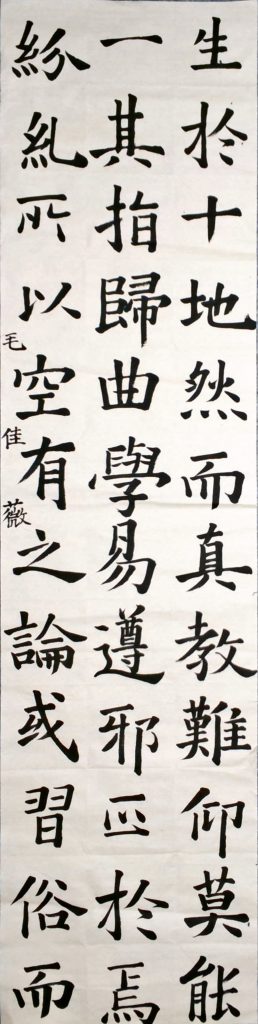 生於十地然而真教難仰莫能
一其指歸曲學易遵邪正於焉
紛糺所以空有之論或習俗而
毛佳薇